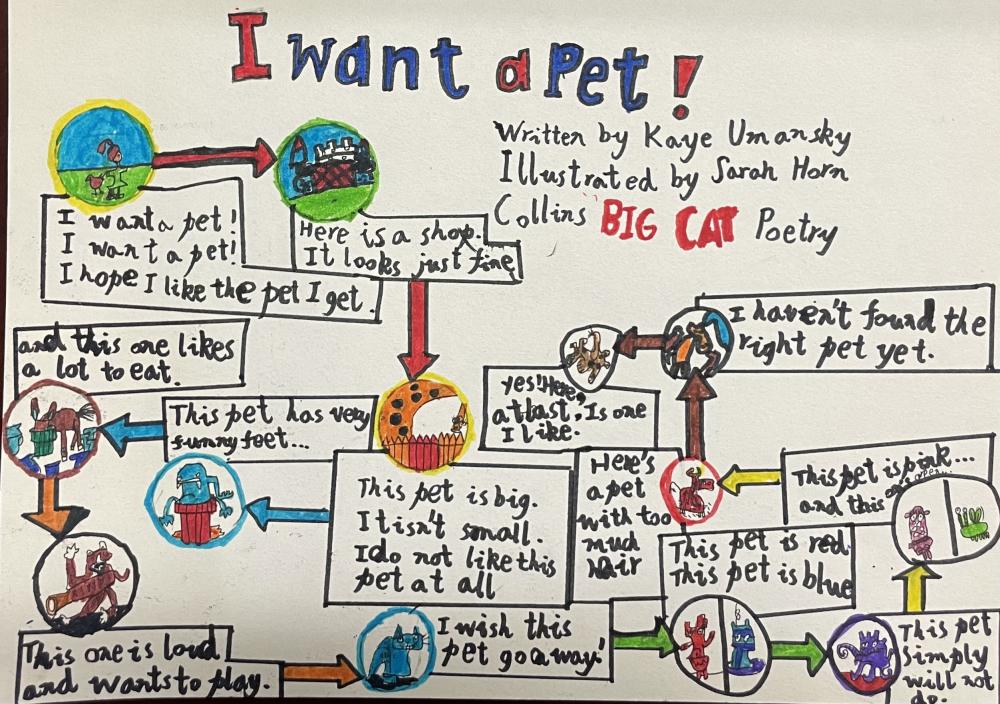 I want a Pet!
Written by Kaye Umansky
Illustrated by Sarah Horn
Collins BIG CAT Poetry
I want a pet!
I want a pet!
I hope I like the pet I get.
Here is a shop.
It looks just fine
This pet is big.
It isn't small.
I do not like this
pet at all
This pet has very
funny feet...
and this one likes
a lot to eat.
This one is loud
and wants to play.
I wish this
pet go away!
This pet is red
This pet is blue
This pet
simply
will not
do.
This pet is pink...
and this one green...
Here's
a pet
with too
much
hair
I haven't found the
right pet yet.
yes! Here,
at last, Is one
I like.